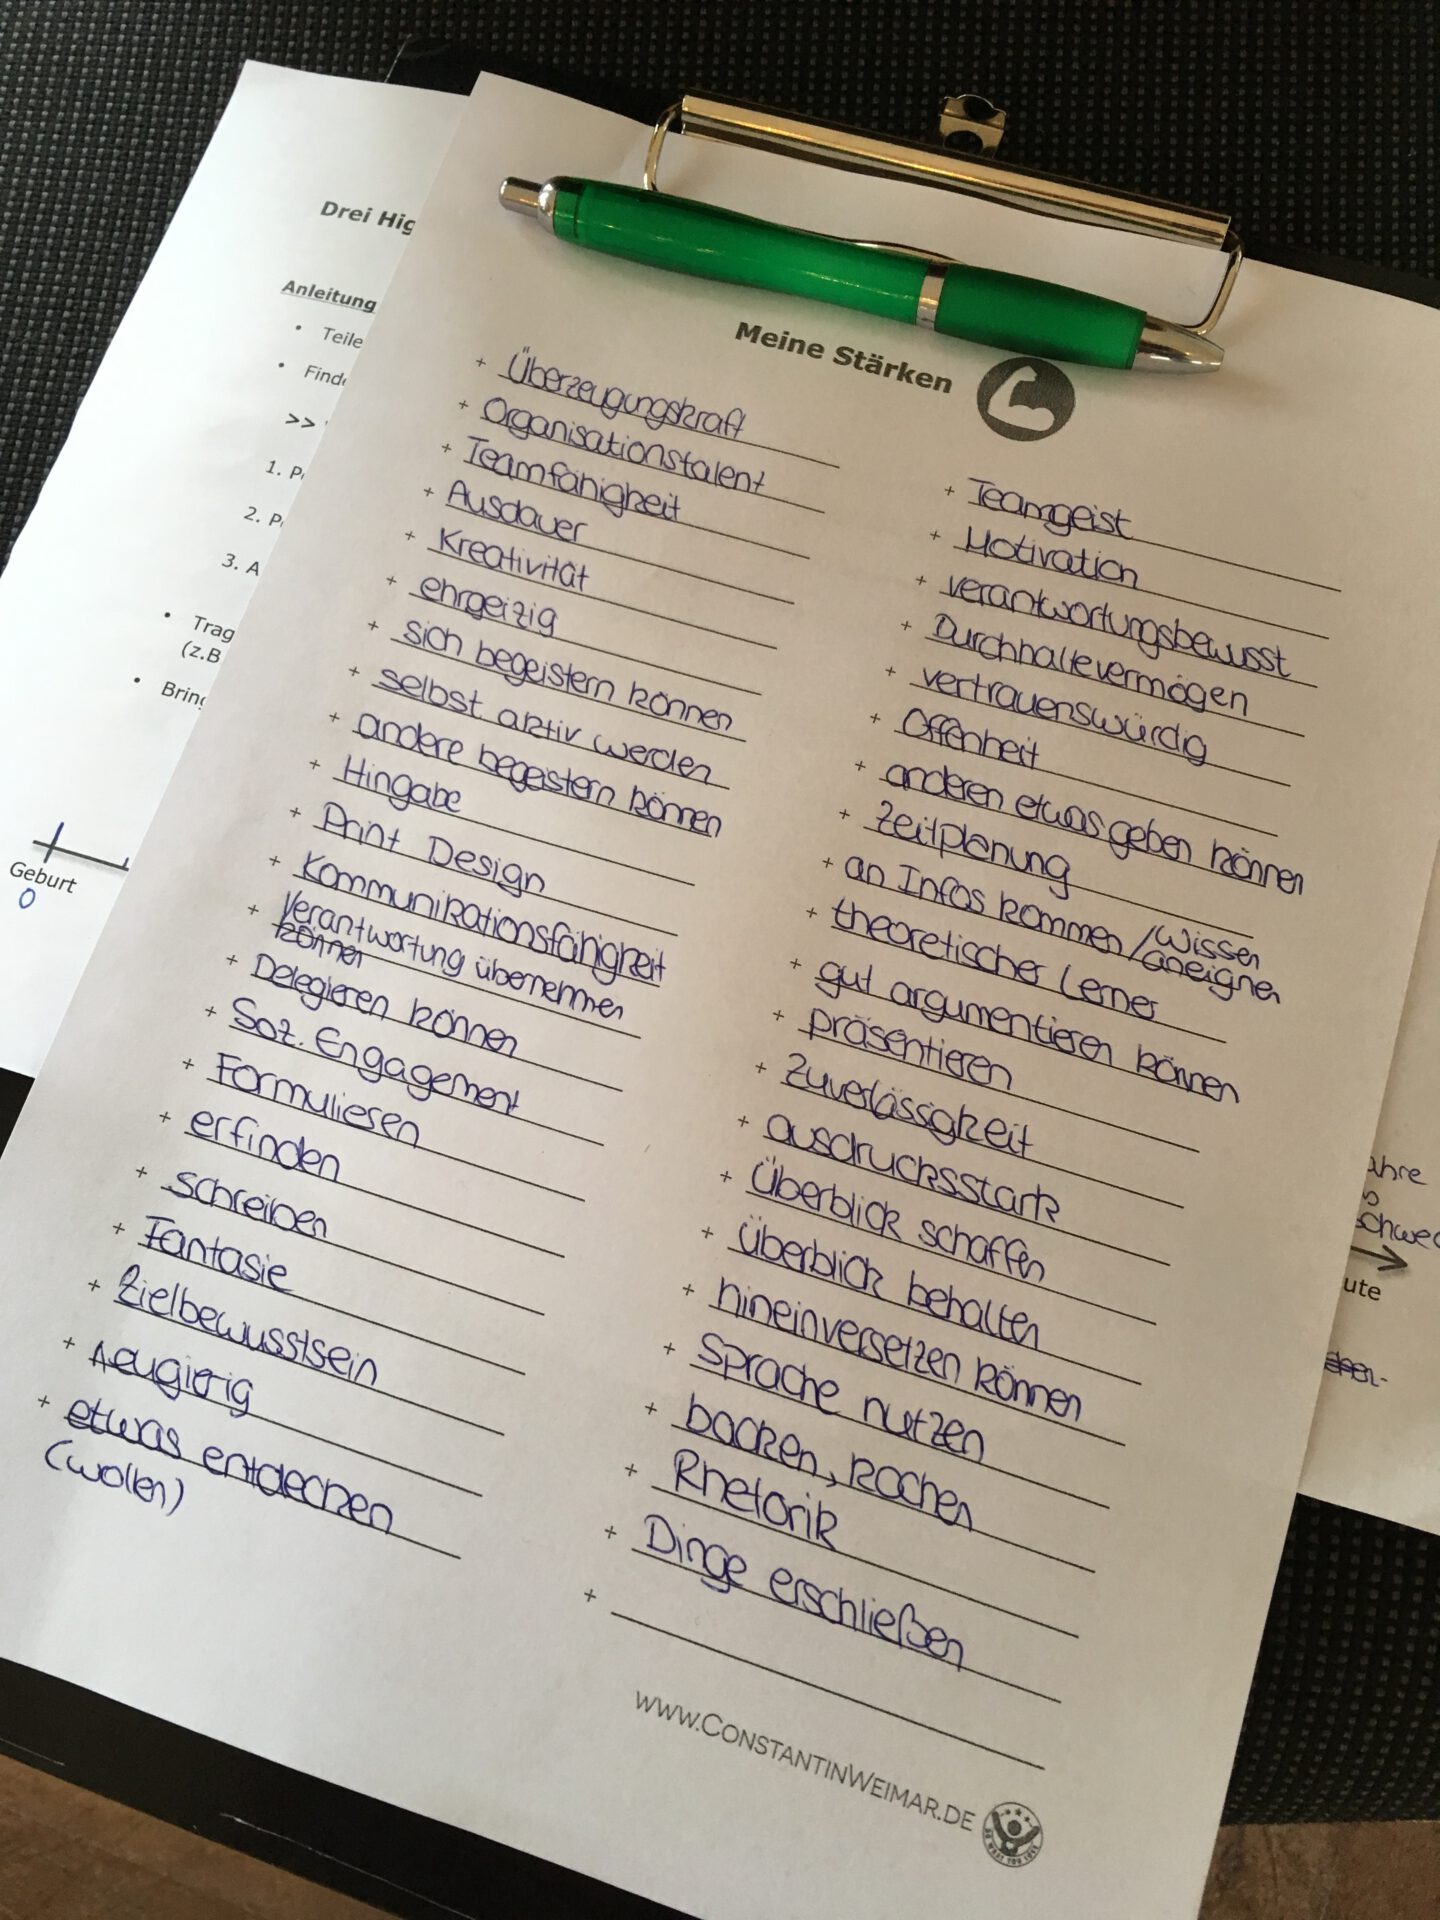 Drei Hig
Anleitung
• Teile
• Finde
>>
1. P
2. P
3. A
• Trag
(z.B
• Bring
Geburt
0
Meine Stärken
+ Überzeugungskraft
+ Organisationstalent
+ Teamfähigkeit
+ Ausdauer
+ Kreativität
+ ehrgeizig
+ sich begeistern können
+ selbst aktiv werden
+ andere begeistern können
+ Hingabe
+ Print Design
+ Kommunikationsfähigkeit
+ Verantwortung übernehmen
können
+ Delegieren können
+ Soz. Engagement
+ Formulieren
+ erfinden
+ schreiben
+ Fantasie
+ Zielbewusstsein
+ neugierig
+ etwas entdecken
(wollen)
+ Teamgeist
+ Motivation
+ verantwortungsbewusst
+ Durchhaltevermögen
+ vertrauenswürdig
+ Offenheit
+ anderen etwas geben können
+ Zeitplanung
+ an Infos kommen / Wissen
aneignen
+ theoretischer Lerner
+ gut argumentieren können
+ präsentieren
+ Zuverlässigkeit
+ ausdrucksstark
+ Überblick schaffen
+ überblick behalten
+ hineinversetzen können
+ Sprache nutzen
+ backen, kochen
+ Rhetorik
+ Dinge erschließen
+
www.ConstantinWeimar.de
DO WHAT YOU LOVE
ahre
schwed
ute